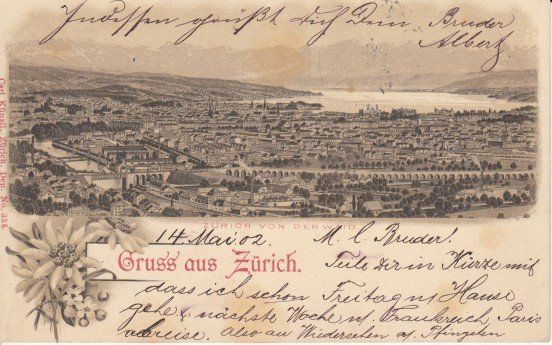 Indessen grüßt Dich Dein Bruder
Albert
Carl Künzli, Zürich, Dep. No. 324
ZÜRICH VON DER WAID
14 Mai 02. M. l. Bruder!
Gruss aus Zürich.
Teile dir in Kürze mit
dass ich schon Freitag ns Hause
gehe, nächste Woche n. Frankreich Paris
abreise. also au Wiedersehen a. Pfingsten